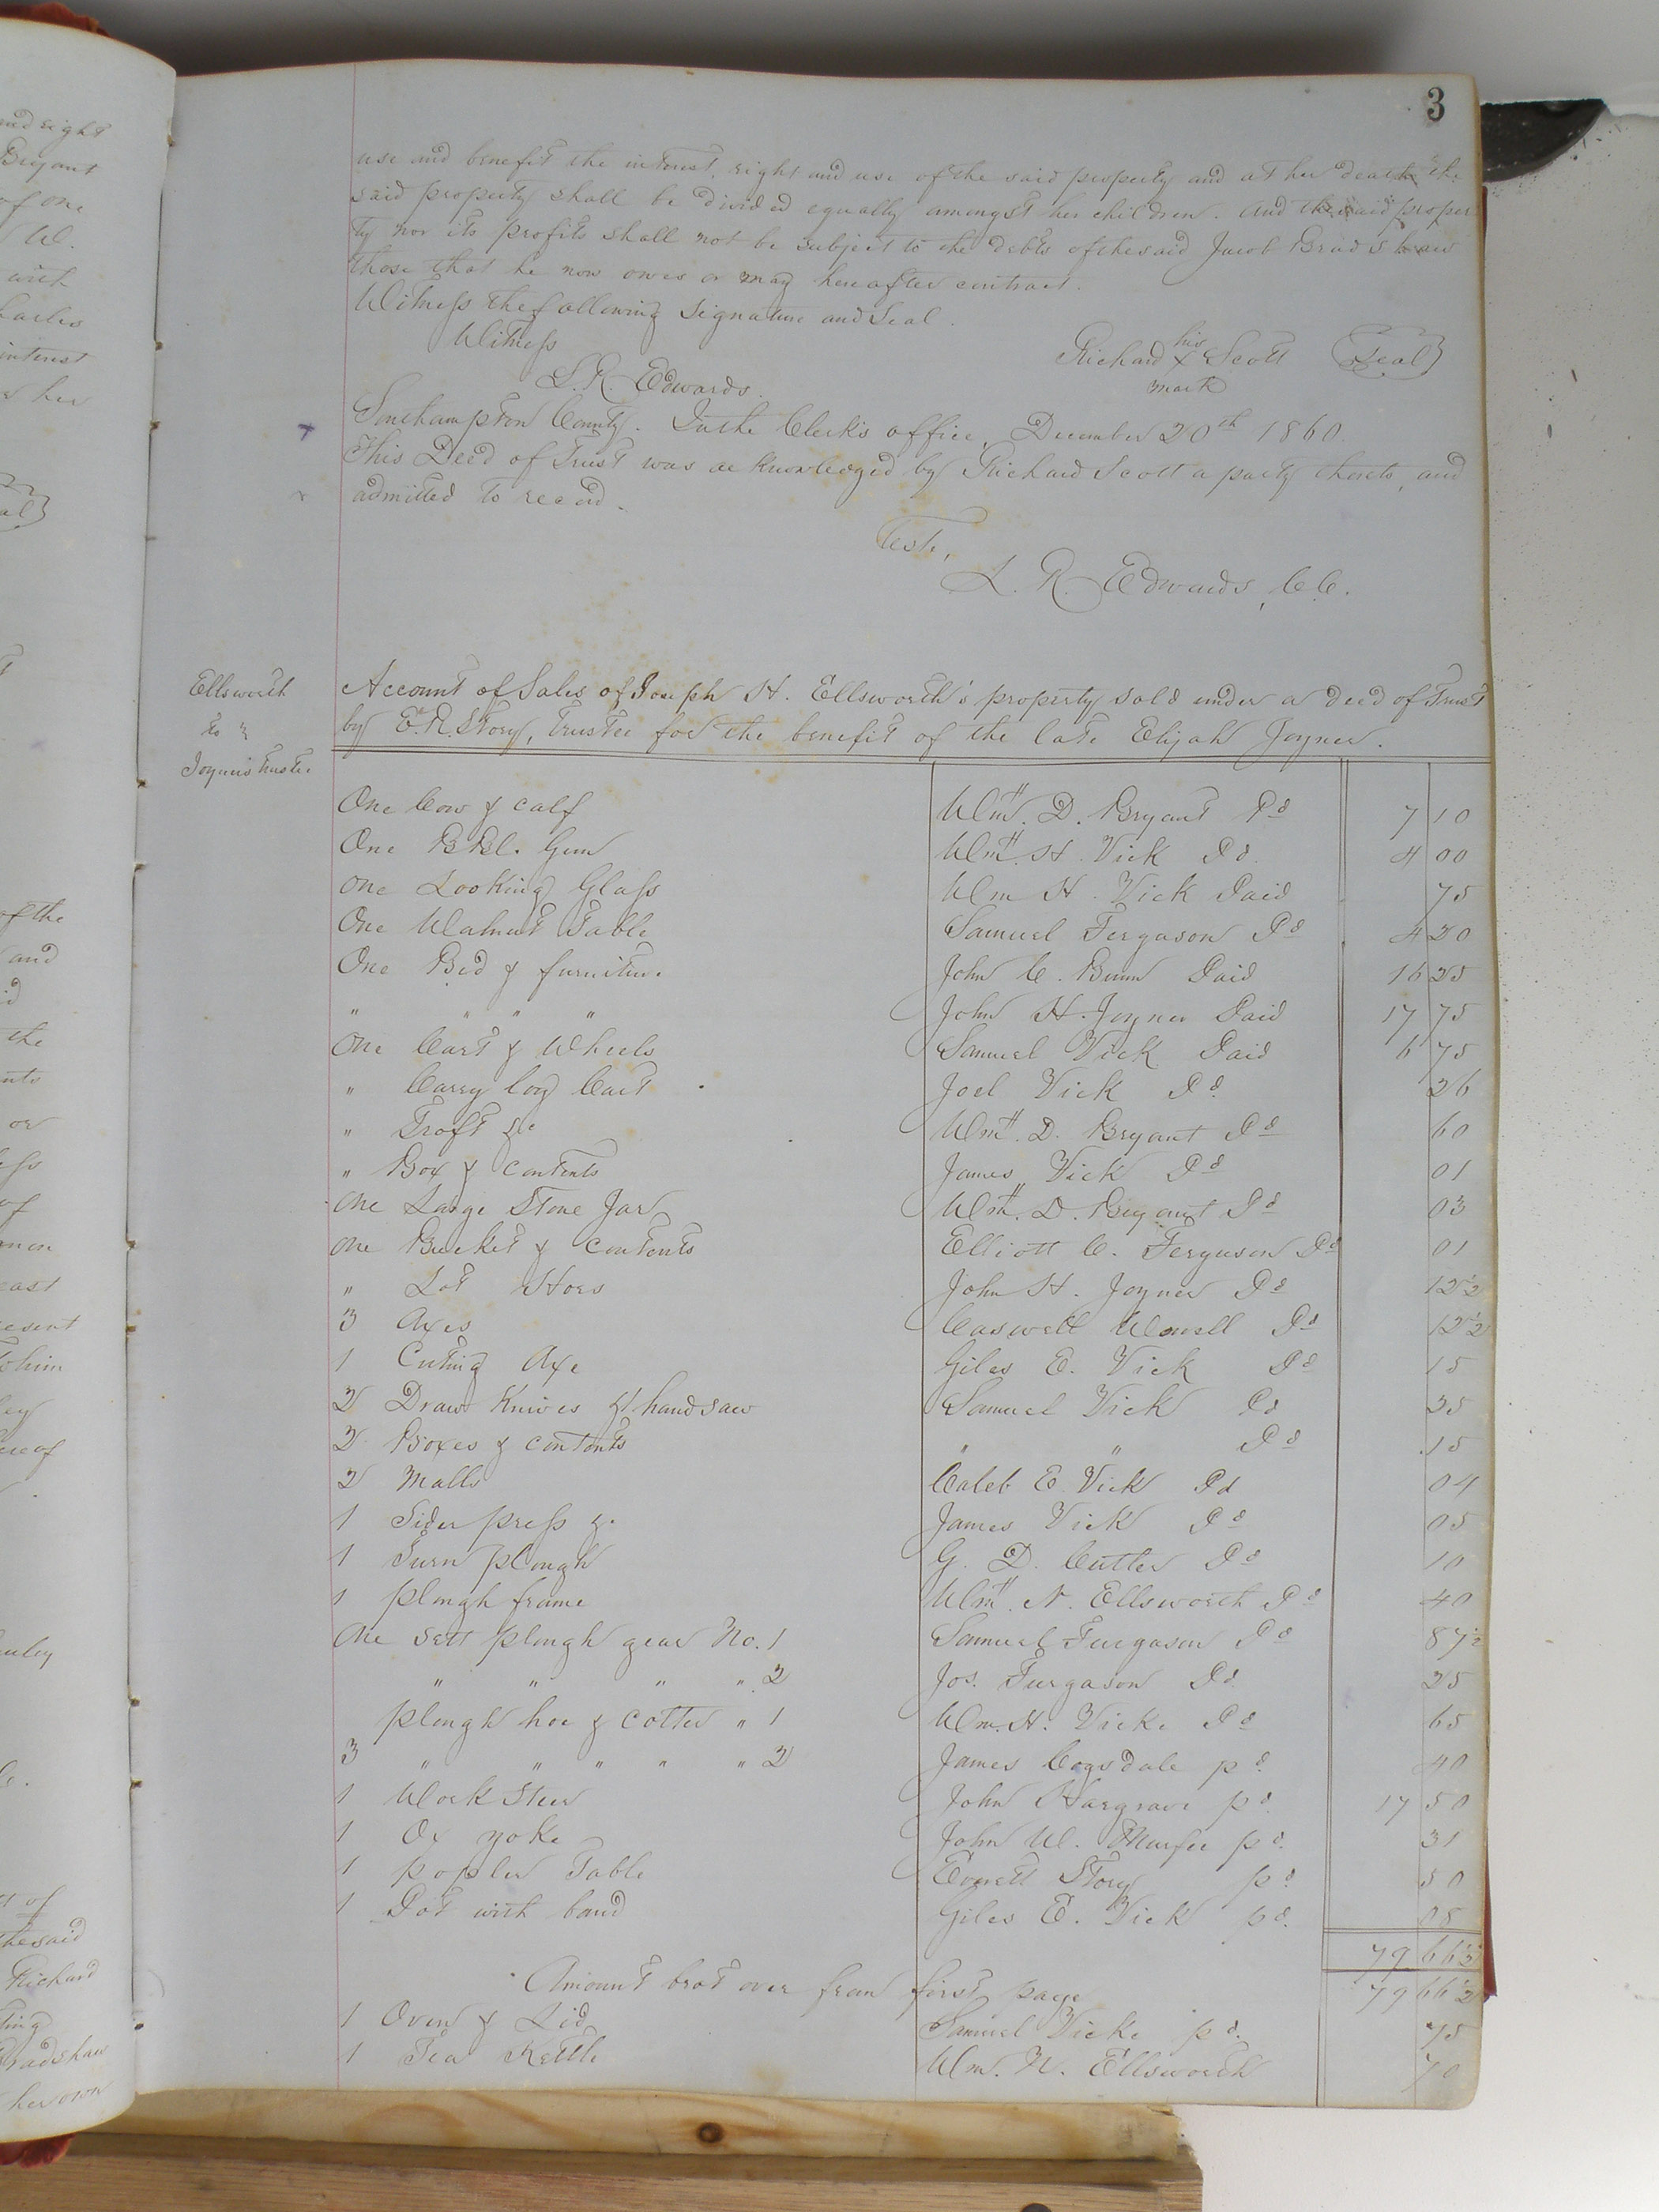 and right
Bryant
of one
W.
with
Charles
interest
her
of the
and
the
or
of
east
present
to him
of
the said
Richard
Bradshaw
her own
3
use and benefit the interest, right and use of the said property and at her death the
said property shall be divided equally amongst her children. And the said proper
ty nor its profits shall not be subject to the debts of the said Jacob Bradshaw
those that he now owes or may hereafter contract.
Witness the following signature and Seal.
Witness
Richard his x mark Scott (Seal)
L. R. Edwards.
Southampton County. In the Clerk's office, December 20th 1860.
This Deed of Trust was acknowledged by Richard Scott a party thereto, and
admitted to record.
Teste,
L. R. Edwards, C.C.
Ellsworth
to
Joyner's Trustee
Account of Sales of Joseph H. Ellsworth's property sold under a deed of Trust
by E. R. Story, Trustee for the benefit of the late Elijah Joyner.
One Cow & calf Wm. D. Bryant Pd 7 10
One BBl. Gun Wm. H. Vick Pd. 4 00
One Looking Glass Wm H. Vick Paid 75
One Walnut Table Samuel Fergason Pd 4 20
One Bed & furniture John C. Bunn Paid 16 25
" " " " John H. Joyner Paid 17 75
One Cart & Wheels Samuel Vick Paid 6 75
" Carry log Cart Joel Vick Pd. 26
" Troft &c Wm. D. Bryant Pd 60
" Box & contents James Vick Pd 01
One Large Stone Jar Wm. D. Bryant Pd 03
One Bucket & Contents Elliott C. Ferguson Pd 01
" Lot Hoes John H. Joyner Pd 12½
3 Axes Caswell Worrell Pd 12½
1 Cuting Axe Giles E. Vick Pd 15
2 Draw Knives & 1 handsaw Samuel Vick Pd 35
2 Boxes & contents " " Pd 15
2 Malls Caleb E. Vick Pd 04
1 Sider press &. James Vick Pd 05
1 Turn plough G. D. Cutler Pd 10
1 plough frame Wm. N. Ellsworth Pd 40
One sett plough gear No. 1 Samuel Furgason Pd 87½
" " " " 2 Jos. Furgason Pd. 25
plough hoe & cotter " 1 Wm. H. Vick. Pd 65
3 " " " " " 2 James Cogsdale pd. 40
1 Work Steer John Hargrave pd. 17 50
1 Ox yoke John W. Murfee pd. 31
1 popler Table Everett Story pd. 50
1 Pot with band Giles E. Vick pd. 05
79 66½
Amount brot over from first page 79 66½
1 Oven & Lid Samuel Vick pd. 75
1 Tea Kettle Wm. N. Ellsworth 70